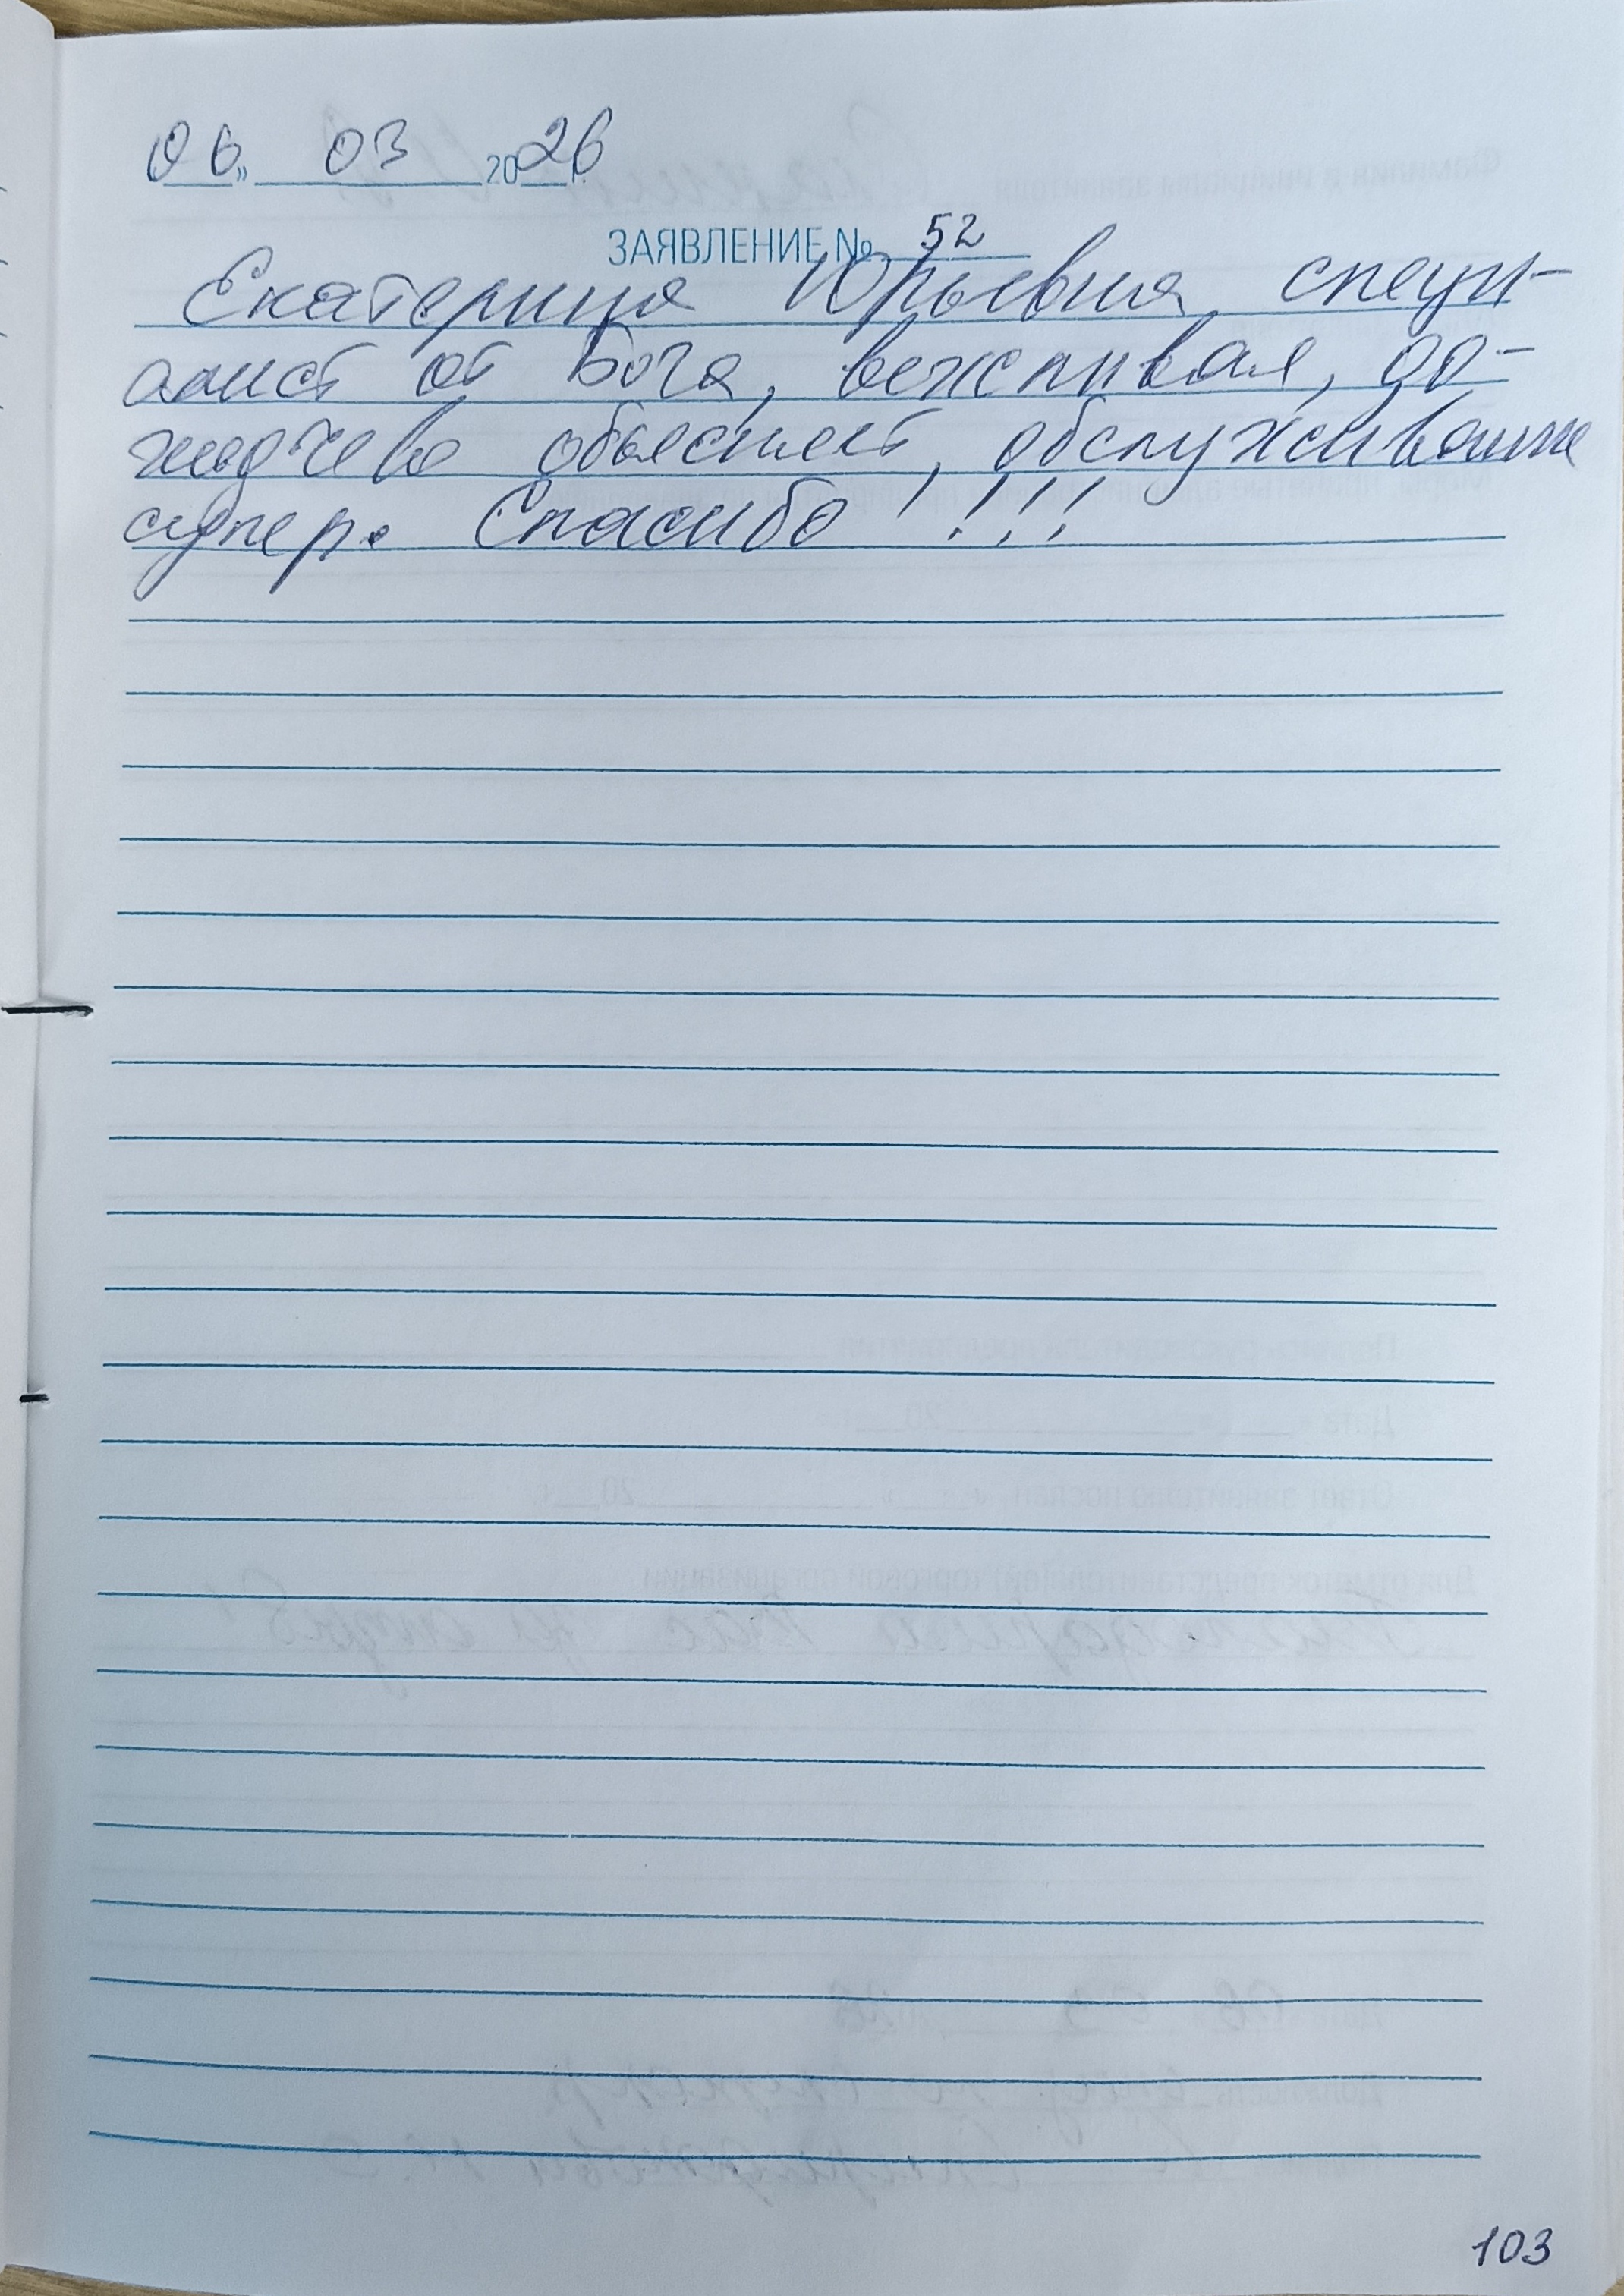 06 » 03 2026 г.
ЗАЯВЛЕНИЕ № 52
Екатерина Юрьевна, специ-
алист от Бога, вежливая, до-
ходчево объясняет, обслуживание
супер. Спасибо !!!!
103